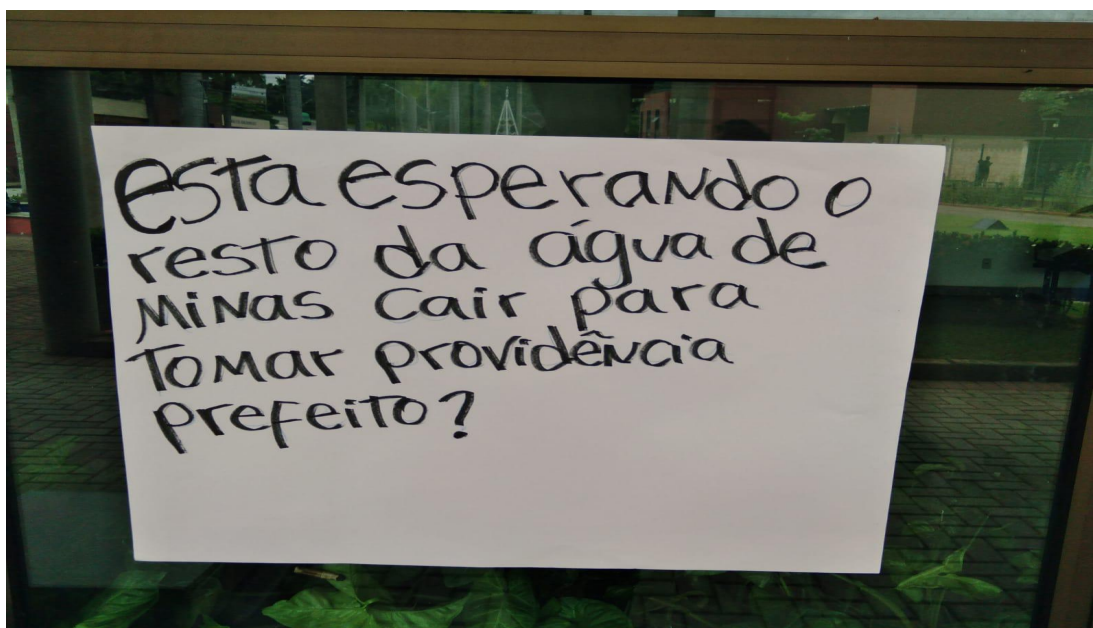 Esta esperando o
resto da água de
Minas cair para
Tomar providência
prefeito?